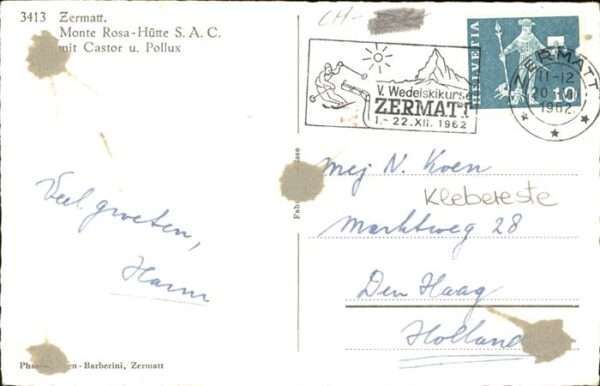 3413 Zermatt.
Monte Rosa-Hütte S. A. C.
mit Castor u. Pollux
CH-
HELVETIA
10
V. Wedelskikurse
ZERMATT
1.-22.XII. 1962
ZERMATT
11-12
20
1962
Veel groeten,
Harm
Mej N. Koen
Klebereste
Marktweg 28
Den Haag
Holland
-Barberini, Zermatt